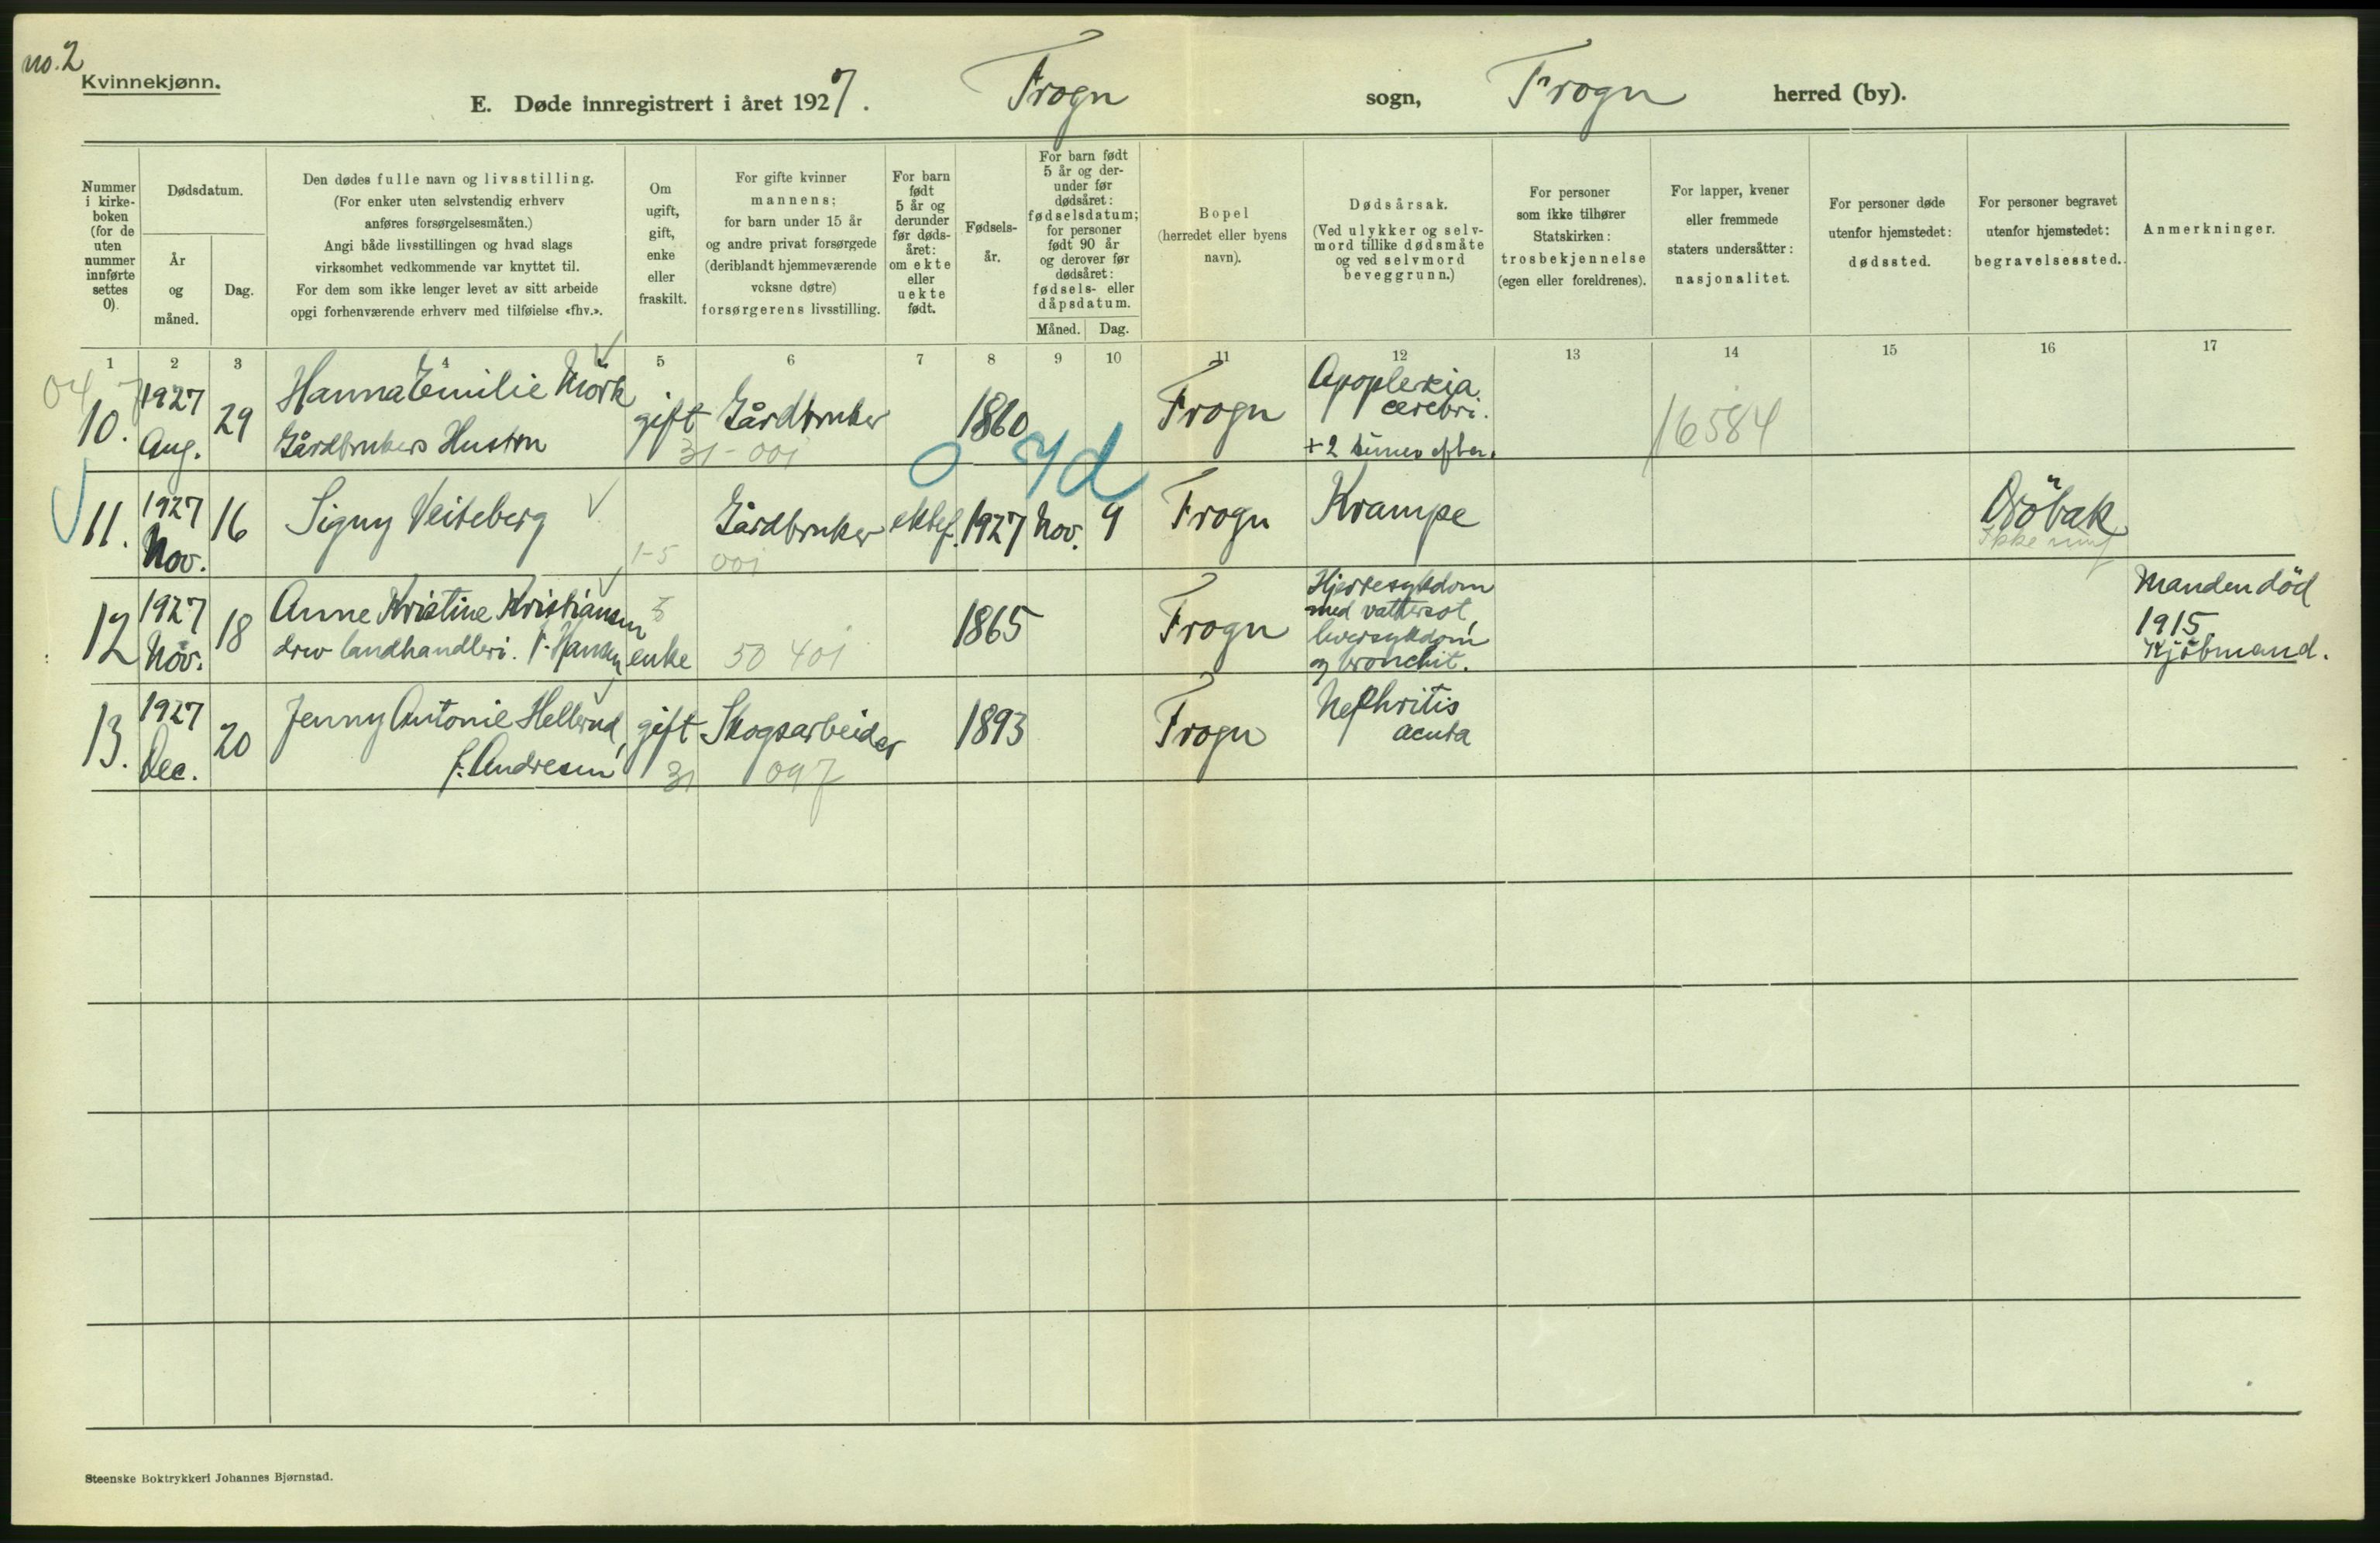 no. 2
Kvinnekjønn.
E. Døde innregistrert i året 1927. Frogn sogn, Frogn herred (by).
Nummer
i kirke-
boken
(for de
uten
nummer
innførte
settes
0).
Dødsdatum.
År
og
måned.
Dag.
Den dødes fulle navn og livsstilling.
(For enker uten selvstendig erhverv
anføres forsørgelsesmåten.)
Angi både livsstillingen og hvad slags
virksomhet vedkommende var knyttet til.
For dem som ikke lenger levet av sitt arbeide
opgi forhenværende erhverv med tilføielse «fhv.».
Om
ugift,
gift,
enke
eller
fraskilt.
For gifte kvinner
mannens;
for barn under 15 år
og andre privat forsørgede
(deriblandt hjemmeværende
voksne døtre)
forsørgerens livsstilling.
For barn
født
5 år og
derunder
før døds-
året:
om ekte
eller
uekte
født.
Fødsels-
år.
For barn født
5 år og der-
under før
dødsåret:
fødselsdatum;
for personer
født 90 år
og derover før
dødsåret:
fødsels- eller
dåpsdatum.
Måned. Dag.
Bopel
(herredet eller byens
navn).
Dødsårsak.
(Ved ulykker og selv-
mord tillike dødsmåte
og ved selvmord
beveggrunn.)
For personer
som ikke tilhører
Statskirken:
trosbekjennelse
(egen eller foreldrenes).
For lapper, kvener
eller fremmede
staters undersåtter:
nasjonalitet.
For personer døde
utenfor hjemstedet:
dødssted.
For personer begravet
utenfor hjemstedet:
begravelsessted.
Anmerkninger.
1 2 3 4 5 6 7 8 9 10 11 12 13 14 15 16 17
04 7
10. 1927 Aug. 29 Hanna Emilie Mörk gift Gårdbruker 1860 Frogn Apoplexia
cerebri.
Gårdbrukers Hustru 31-001 + 2 timer efter. 16584
0 7d
11. 1927 Nov. 16 Signy Veiteberg Gårdbruker ektef. 1927 Nov. 9 Frogn Krampe Dröbak
1-5 001 Ikke
12 1927 Nov. 18 Anne Kristine Kristiansen 1865 Frogn Hjertesykdom
med vattersot,
drev landhandleri. f. Hansen enke 50 401 leversykdom
og bronchit.
Manden död
1915
Kjöbmand.
13. 1927 Dec. 20 Jenny Antonie Hellerud, gift Skogsarbeider 1893 Frogn Nephritis
acuta
f. Andresen 31 097
Steenske Boktrykkeri Johannes Bjørnstad.